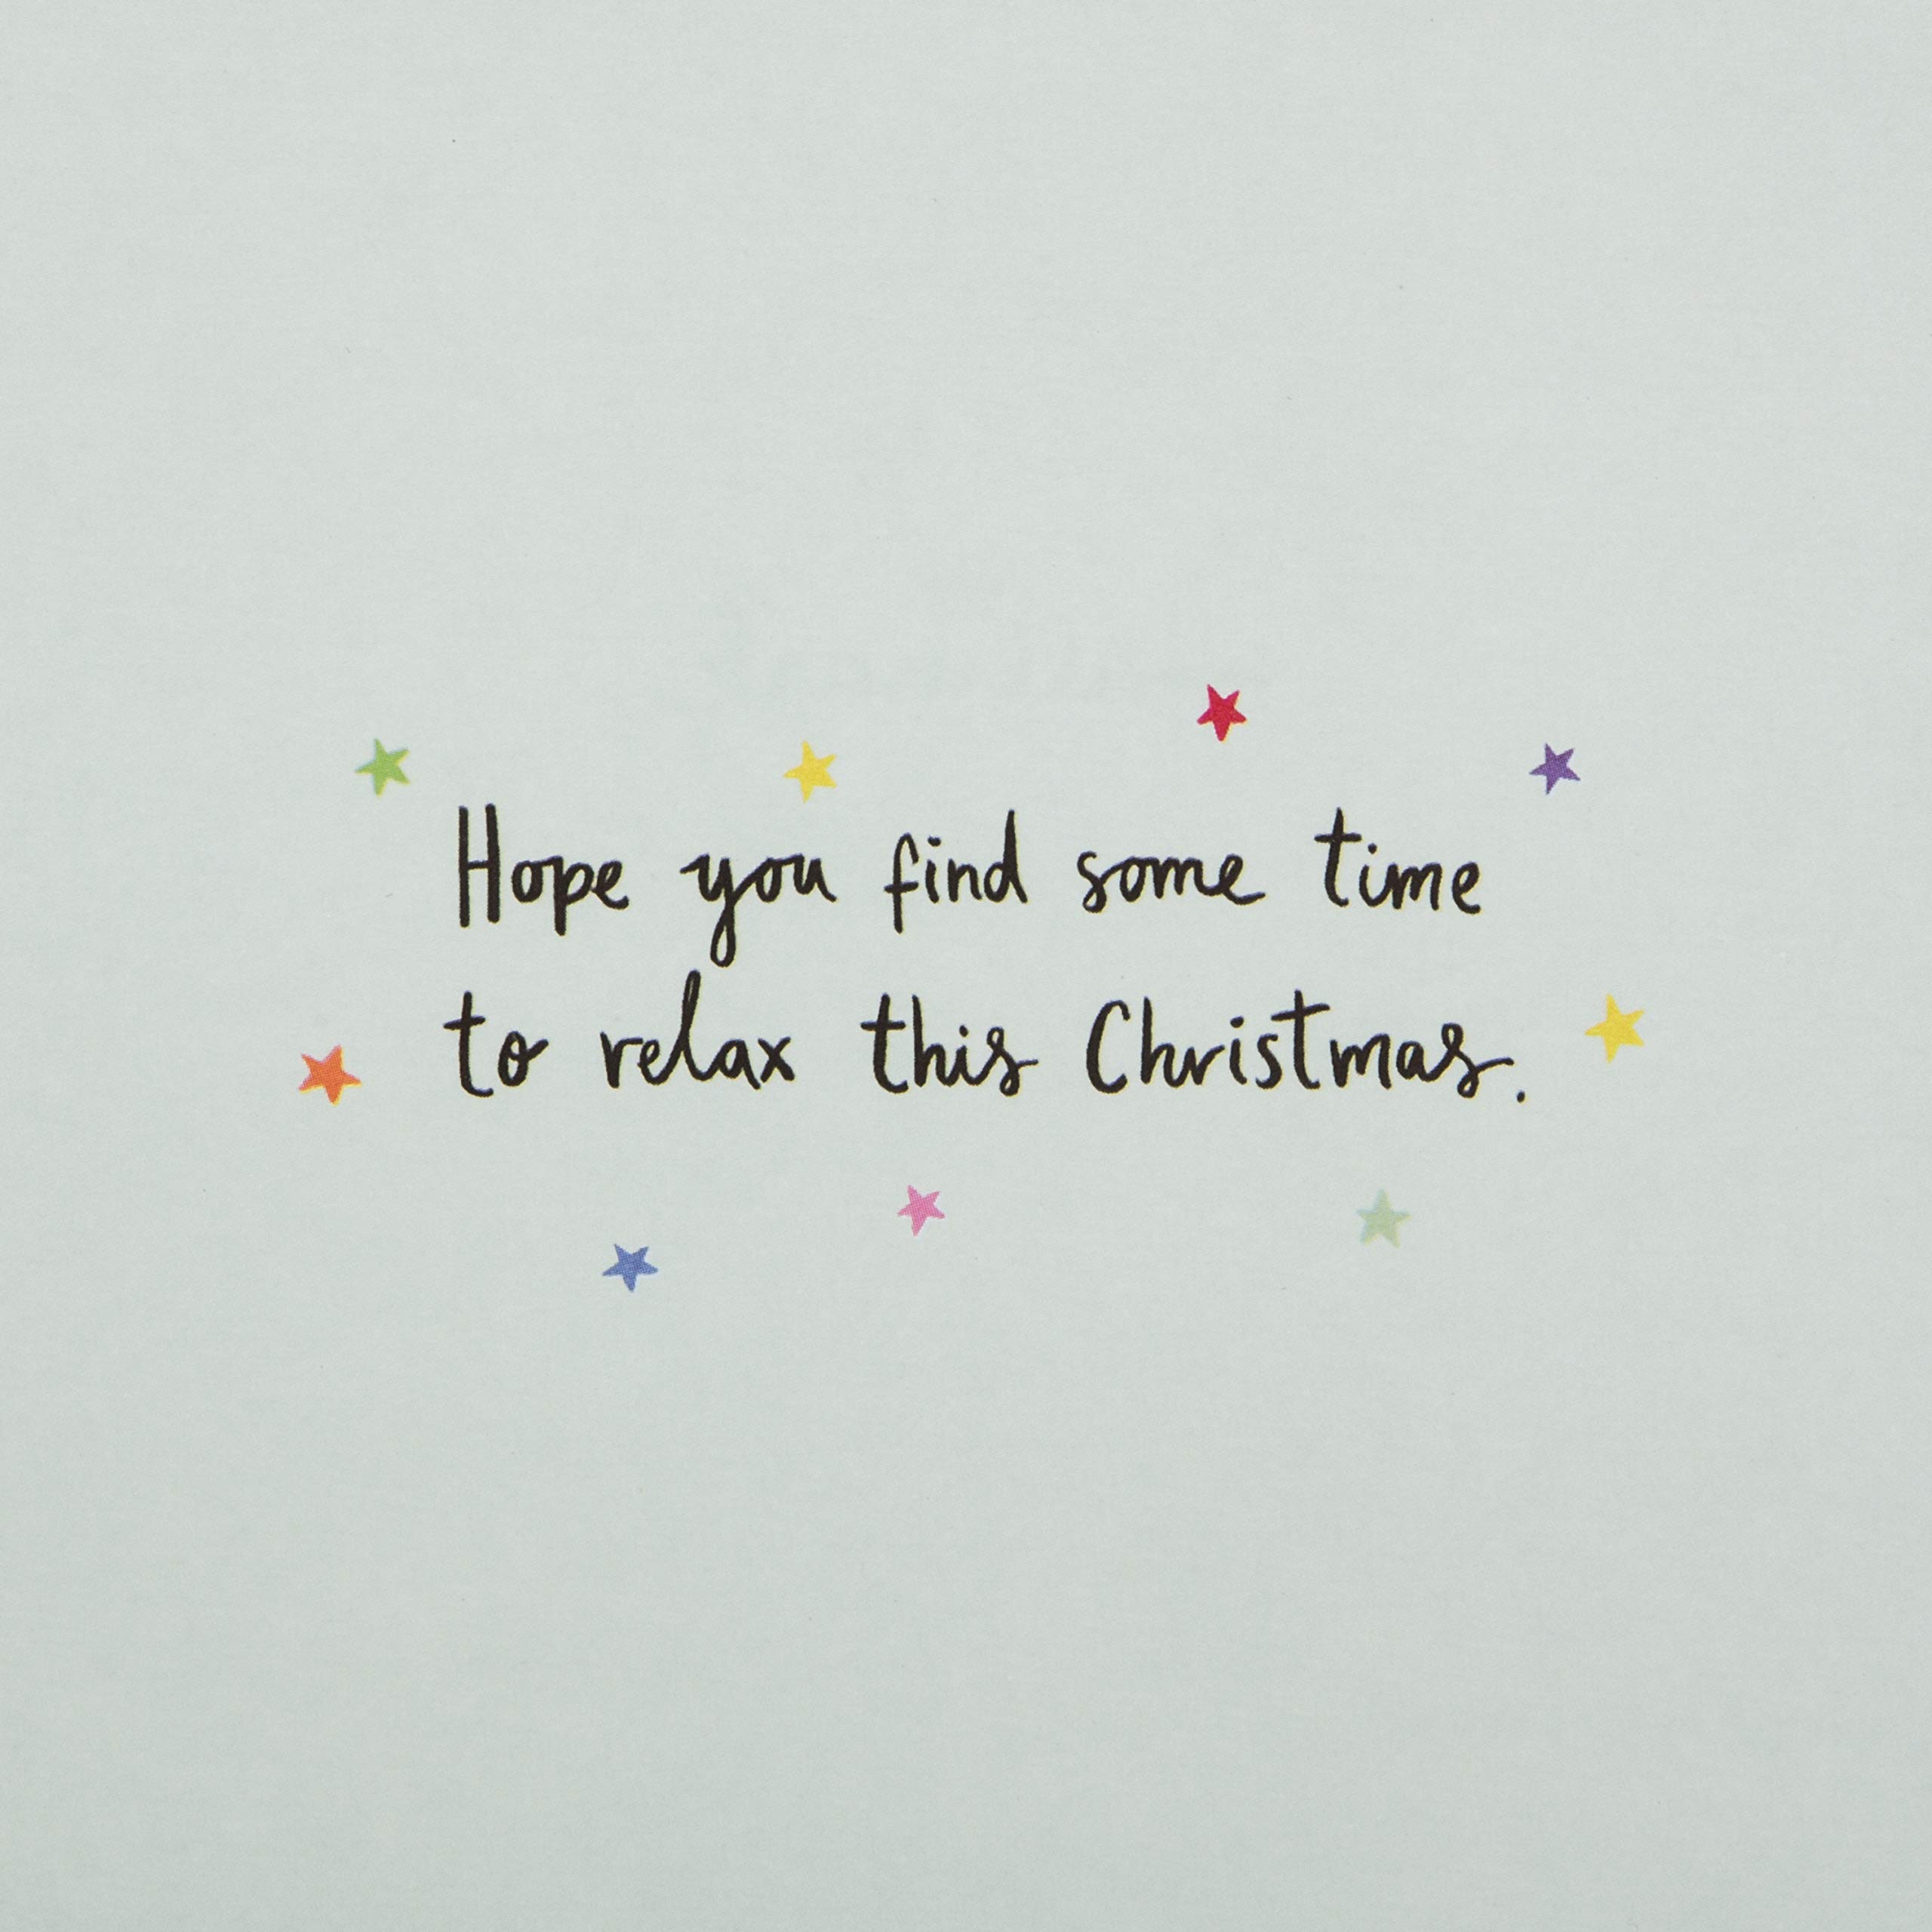 Hope you find some time
to relax this Christmas.